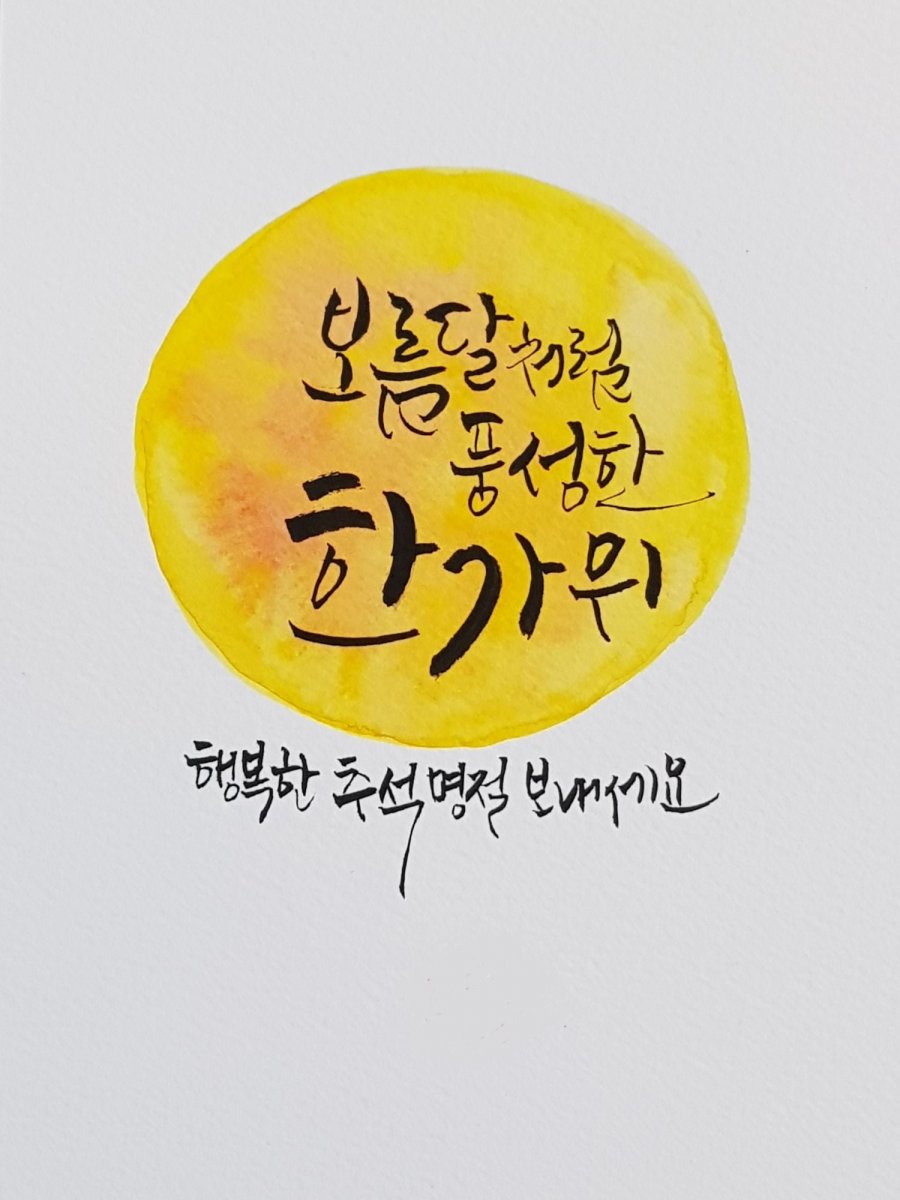 보름달처럼
풍성한
한가위
행복한 추석명절 보내세요